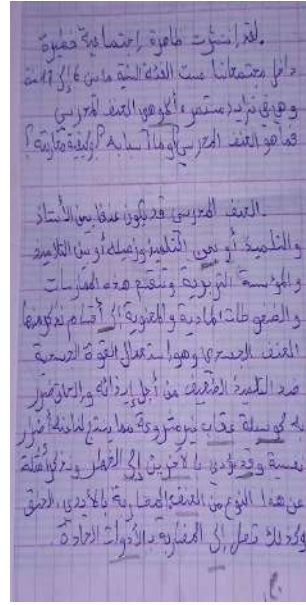 لقد انتشرت ظاهرة إجتماعية خطيرة
داخل مجتمعاتنا مست الفئة السنية ما بين 6 إلى 17 سنة
وهي في تزايد مستمر ألا وهو العنف المدرسي
فما هو العنف المدرسي؟ وما أسبابه؟ وكيفية محاربته؟
العنف المدرسي قد يكون عنفا بين الأستاذ
والتلميذ أو بين التلميذ وزميله أو بين التلاميذ
والمؤسسة التربوية وتنقسم هذه الممارسات
والضغوطات المادية والمعنوية إلى أقسام نذكر منها
العنف الجسدي وهو استعمال القوة الجسدية
ضد التلميذ الضعيف من أجل إيذائه وإلحاق ضرر
به كوسيلة عقاب غير مشروعة مما ينتج لنا عنه أضرار
نفسية وقد يؤدي بالآخرين إلى الخطر ونذكر أمثلة
عن هذا النوع من العنف المضاربة بالأيدي، الخنق
وكذلك تصل إلى المضاربة بالأدوات الحادة.